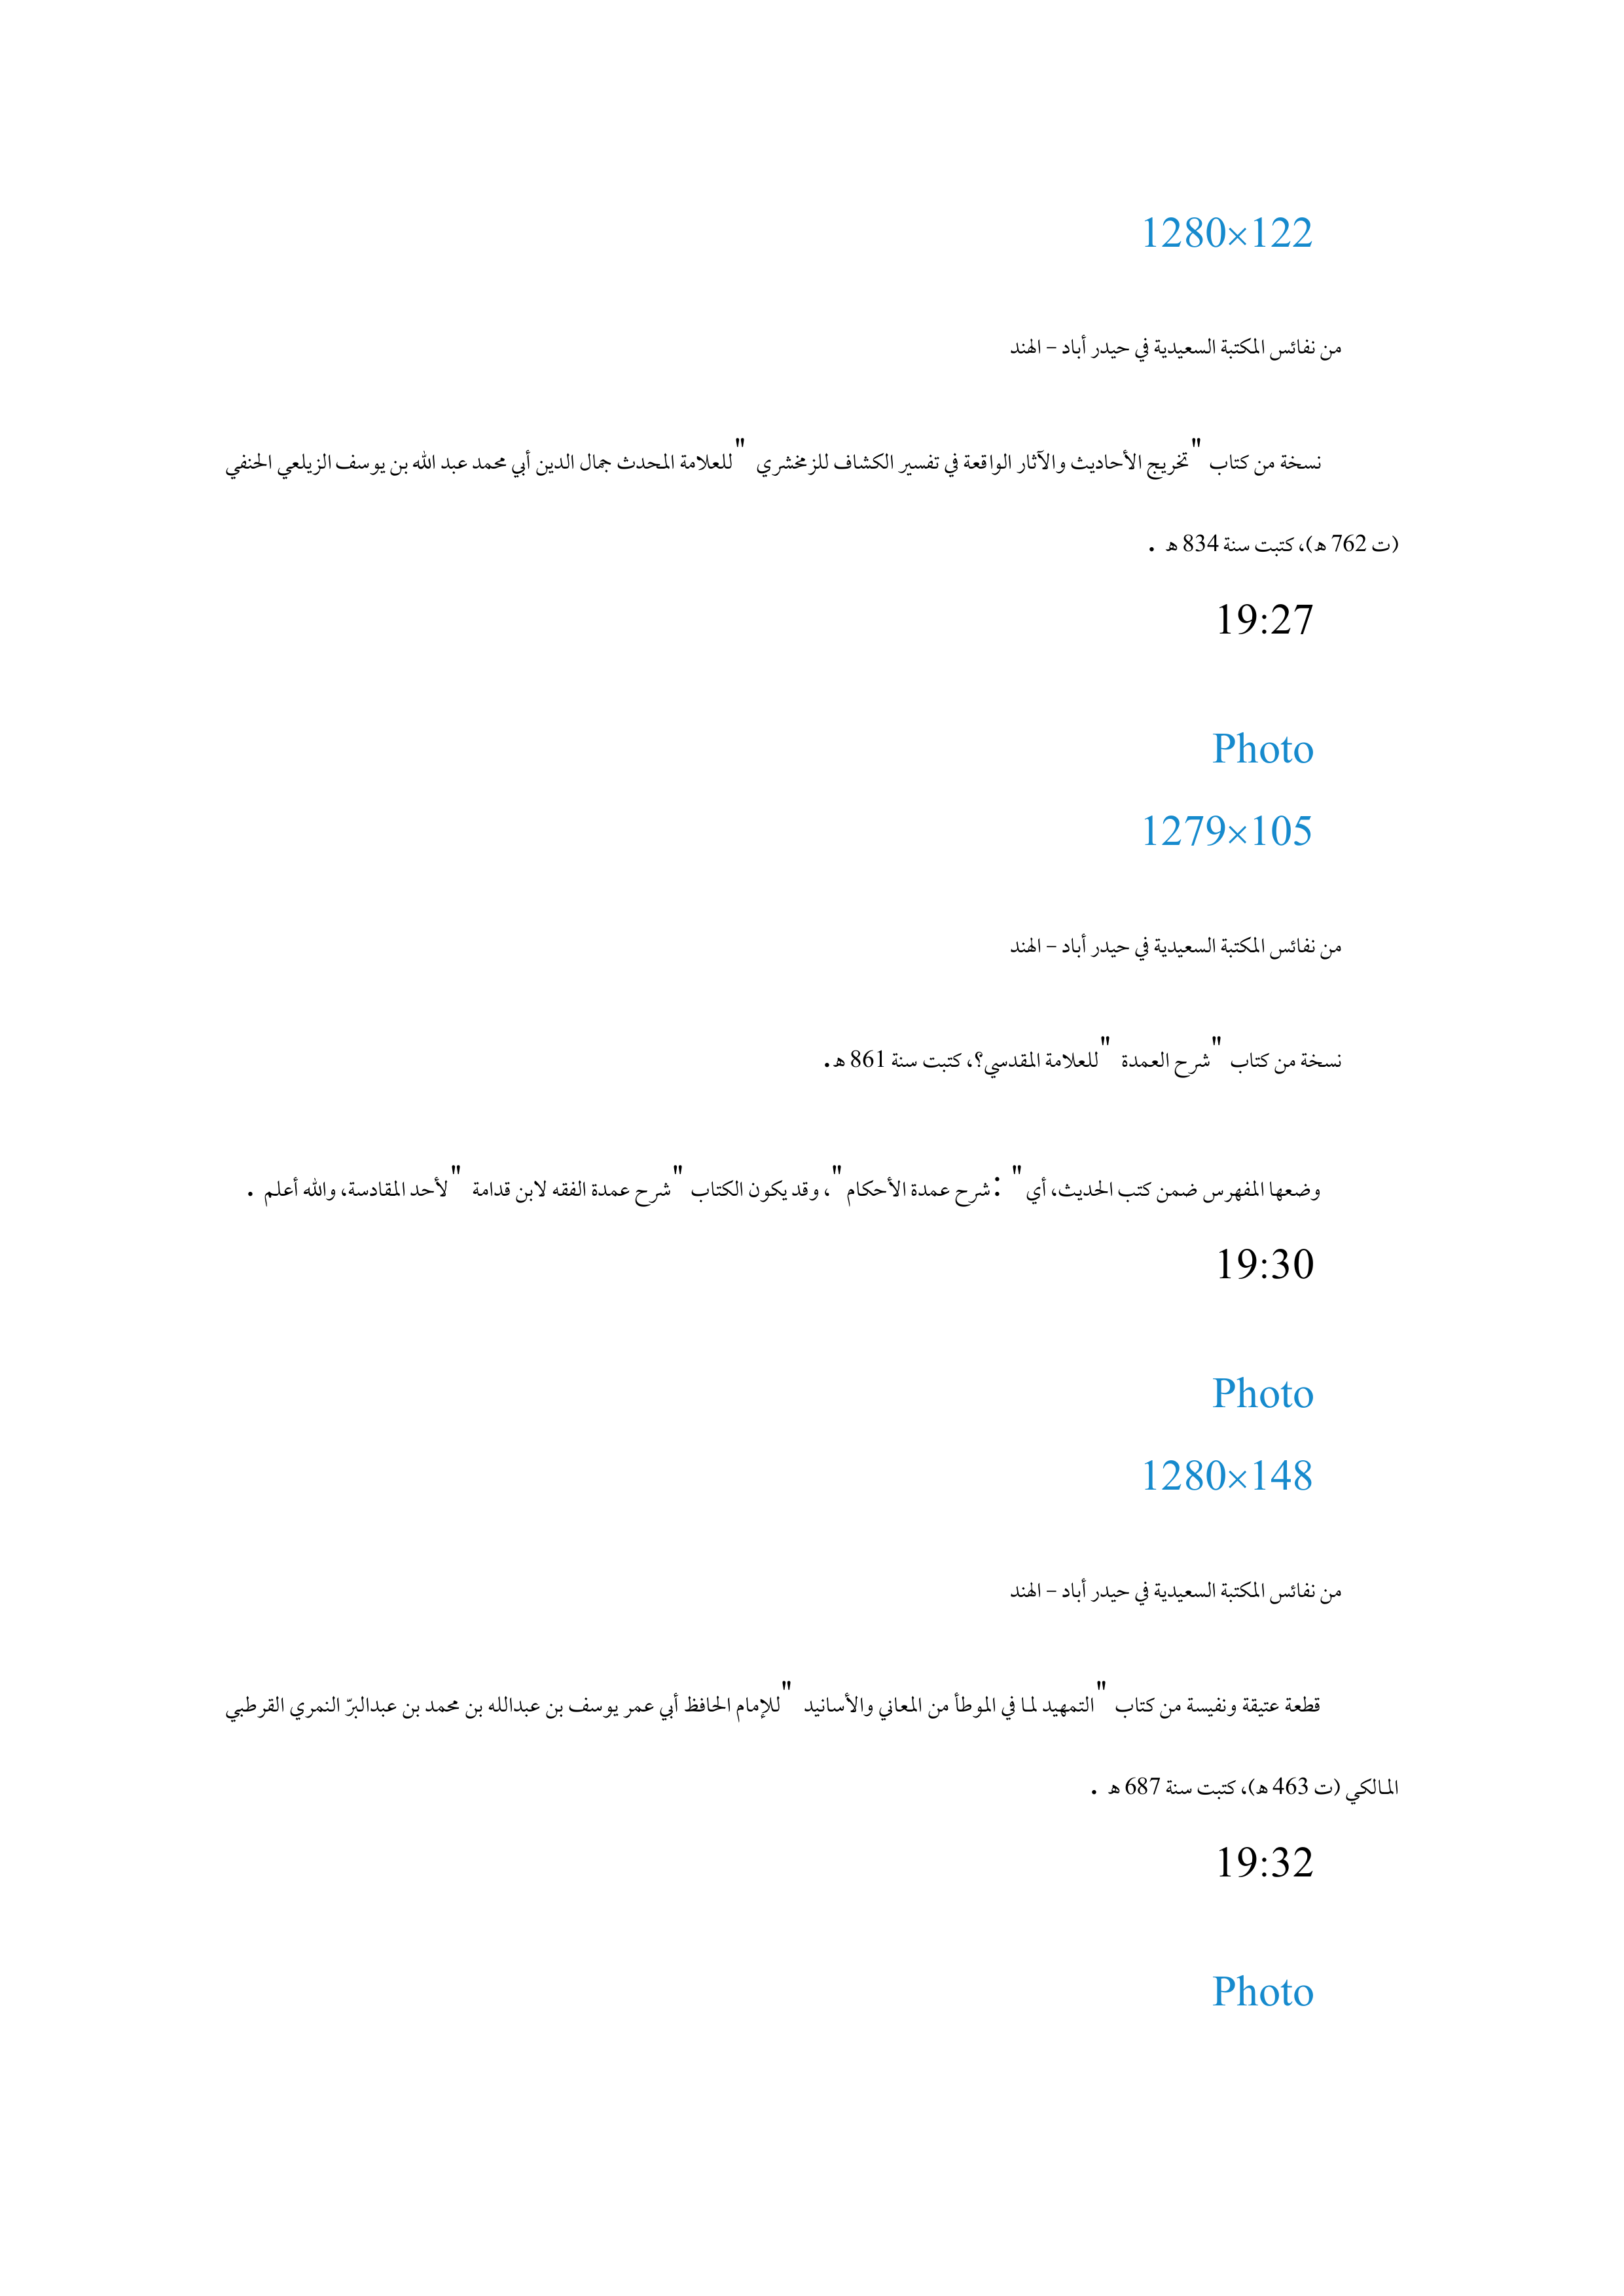 1280×122
من نفائس المكتبة السعيدية في حيدر أباد – الهند
نسخة من كتاب "تخريج الأحاديث والآثار الواقعة في تفسير الكشاف للزمخشري "للعلامة المحدث جمال الدين أبي محمد عبد الله بن يوسف الزيلعي الحنفي
(ت 762 ه)، كتبت سنة 834 ه .
19:27
Photo
1279×105
من نفائس المكتبة السعيدية في حيدر أباد – الهند
نسخة من كتاب "شرح العمدة "للعلامة المقدسي؟، كتبت سنة 861 ه.
وضعها المفهرس ضمن كتب الحديث، أي " :شرح عمدة الأحكام"، وقد يكون الكتاب "شرح عمدة الفقه لابن قدامة "لأحد المقادسة، والله أعلم .
19:30
Photo
1280×148
من نفائس المكتبة السعيدية في حيدر أباد – الهند
قطعة عتيقة ونفيسة من كتاب "التمهيد لما في الموطأ من المعاني والأسانيد "للإمام الحافظ أبي عمر يوسف بن عبدالله بن محمد بن عبدالبرّ النمري القرطبي
المالكي (ت 463 ه)، كتبت سنة 687 ه .
19:32
Photo